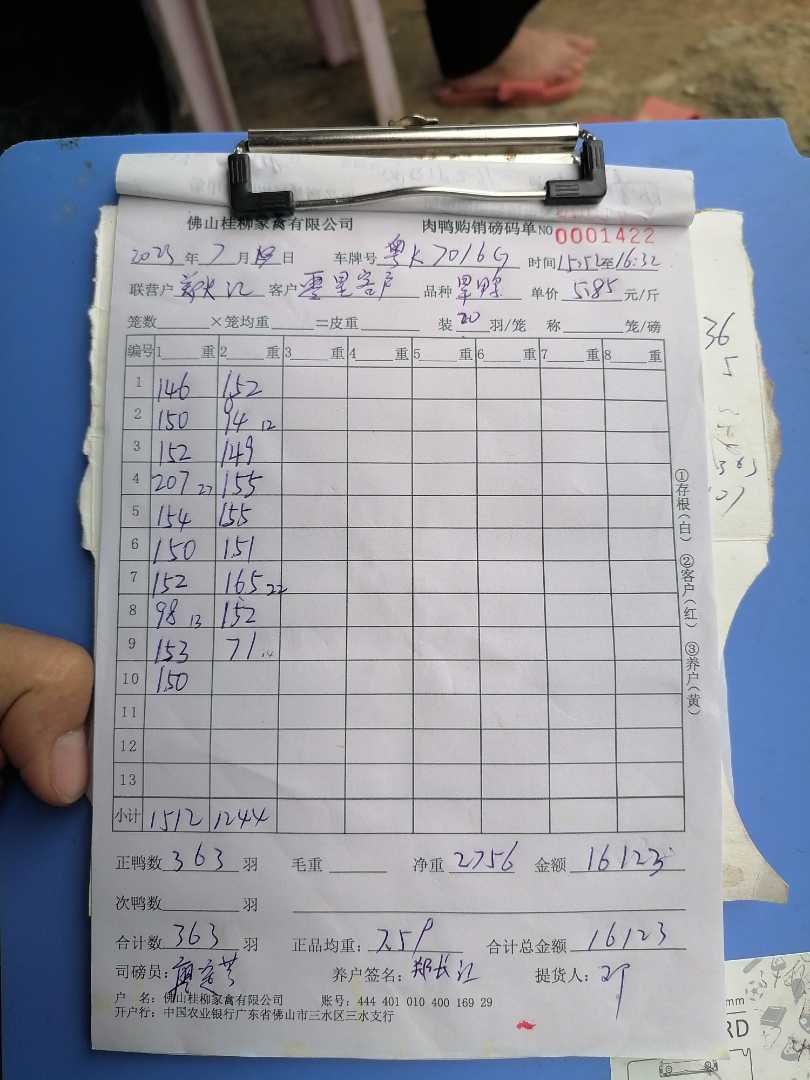 佛山桂柳家禽有限公司 肉鸭购销磅码单 NO 0001422
2023 年 7 月 日 车牌号 粤K7016G 时间 15:52至16:32
联营户 客户 零星客户 品种 单价 5.85 元/斤
笼数 ×笼均重 =皮重 装 20 羽/笼 称 笼/磅
编号 1 重 2 重 3 重 4 重 5 重 6 重 7 重 8 重
1 146 152
2 150 94 12
3 152 149
4 207 27 155
5 154 155
6 150 151
7 152 165 22
8 98 13 152
9 153 71 14
10 150
11
12
13
小计 1512 1244
正鸭数 363 羽 毛重 净重 2756 金额 16123
次鸭数 羽
合计数 363 羽 正品均重: 7.59 合计总金额 16123
司磅员: 养户签名: 郑长江 提货人:
户 名: 佛山桂柳家禽有限公司 账号: 444 401 010 400 169 29
开户行: 中国农业银行广东省佛山市三水区三水支行
①存根(白) ②客户(红) ③养户(黄)
36
5
363
mm
RD